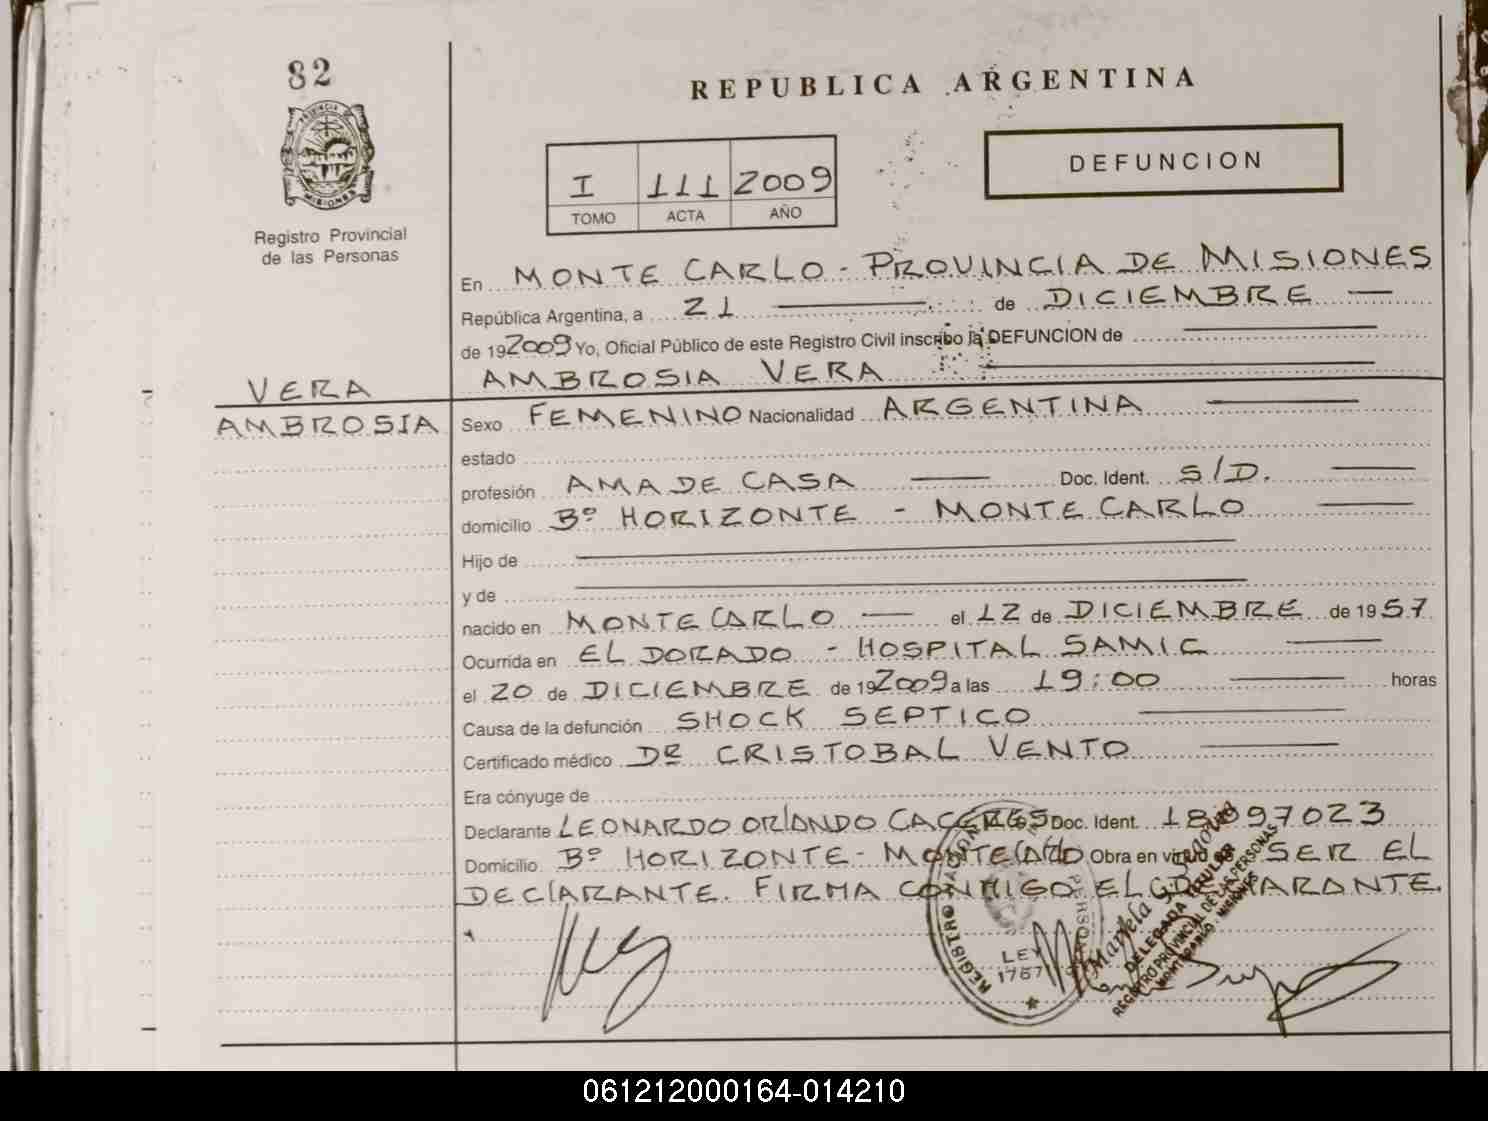 82
REPUBLICA ARGENTINA
DEFUNCION
I 111 2009
TOMO ACTA AÑO
PROVINCIA DE MISIONES
Registro Provincial
de las Personas
En MONTE CARLO - PROVINCIA DE MISIONES
República Argentina, a 21 de DICIEMBRE
de 192009 Yo, Oficial Público de este Registro Civil inscribo la DEFUNCION de
AMBROSIA VERA
VERA
AMBROSIA
Sexo FEMENINO Nacionalidad ARGENTINA
estado
profesión AMA DE CASA Doc. Ident. S/D.
domicilio Bº HORIZONTE - MONTE CARLO
Hijo de
y de
nacido en MONTE CARLO el 12 de DICIEMBRE de 1957
Ocurrida en EL DORADO - HOSPITAL SAMIC
el 20 de DICIEMBRE de 192009 a las 19:00 horas
Causa de la defunción SHOCK SEPTICO
Certificado médico DR CRISTOBAL VENTO
Era cónyuge de
Declarante LEONARDO ORLANDO CACERES Doc. Ident. 18097023
Domicilio Bº HORIZONTE - MONTECARLO Obra en virtud de SER EL
DECLARANTE. FIRMA CONMIGO EL DECLARANTE.
LEY
1767
Mariela
DELEGADA TITULAR
REGISTRO PROVINCIAL DE LAS PERSONAS
MONTECARLO - MISIONES
061212000164-014210